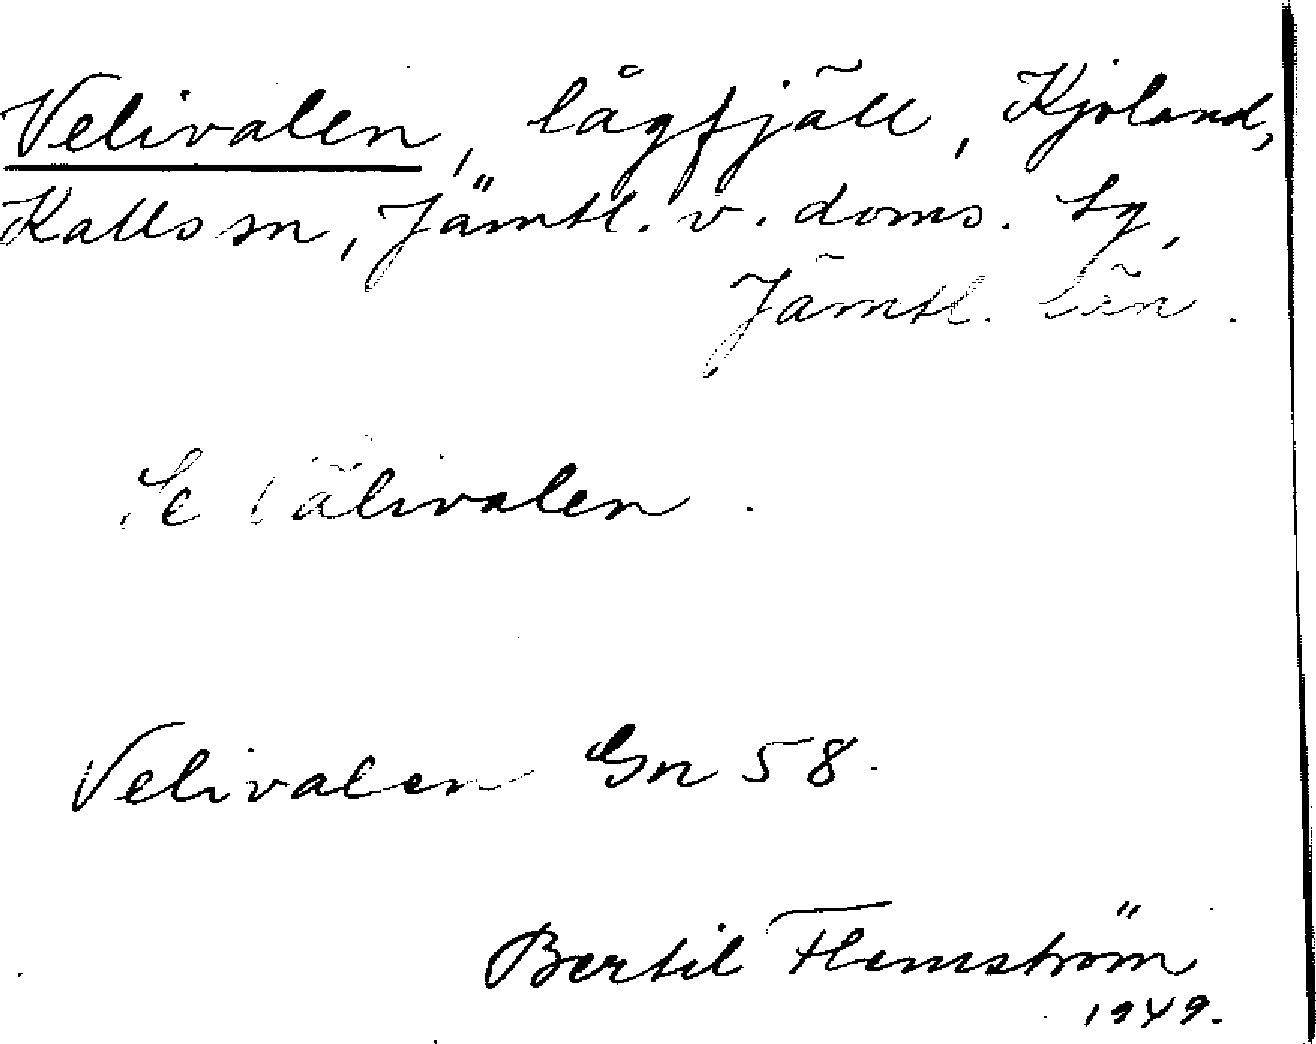 Velivalen, lågfjäll, Kjoland,
Kalls sn, Jämtl. v. doms. sg,
Jämtl. län.
Se Välivalen.
Velivalen Gn 58.
Bertil Flemström
1949.